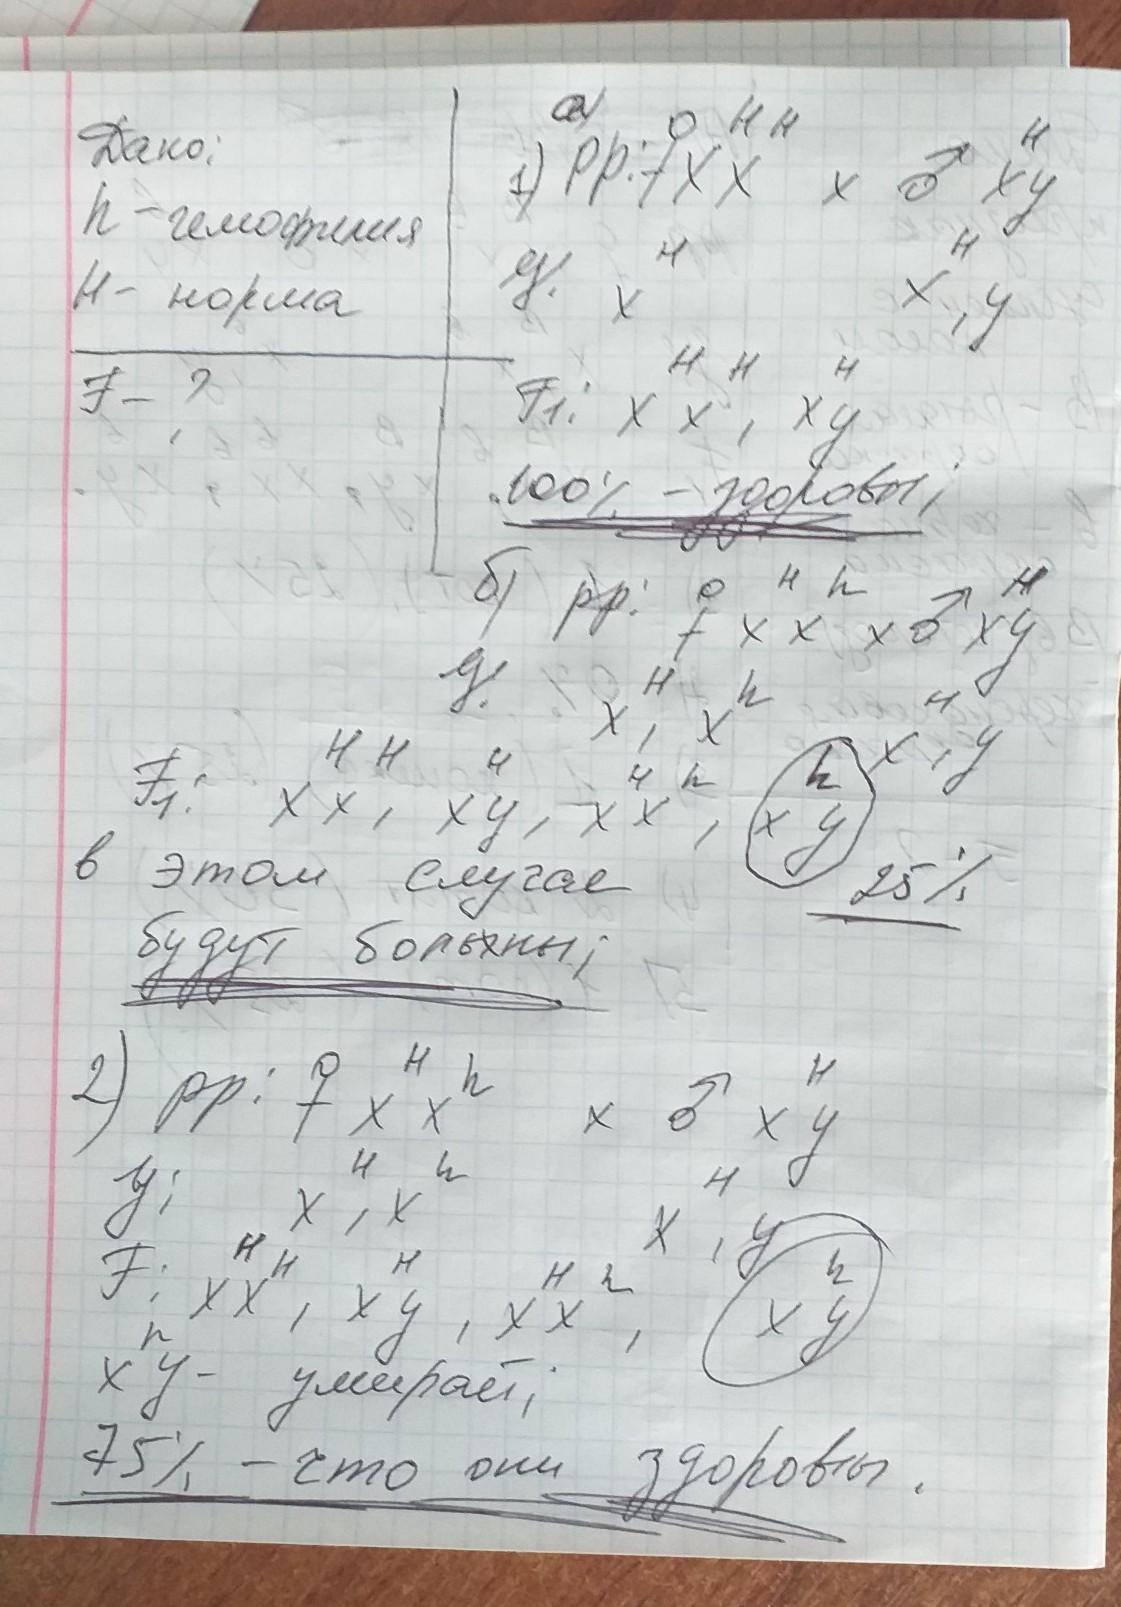 Дано:
h - гемофилия
H - норма
F - ?
а)
1) PP: ♀ XᴴXᴴ x ♂ XᴴY
g: Xᴴ Xᴴ, Y
F₁: XᴴXᴴ, XᴴY
100% - здоровы;
б) PP: ♀ XᴴXʰ x ♂ XᴴY
g: Xᴴ, Xʰ Xᴴ, Y
F₁: XᴴXᴴ, XᴴY, XᴴXʰ, XʰY
в этом случае 25%
будут больхны;
2) PP: ♀ XᴴXʰ x ♂ XᴴY
g; Xᴴ, Xʰ Xᴴ, Y
F: XᴴXᴴ, XᴴY, XᴴXʰ, XʰY
XʰY - умирает;
75% - что они здоровы.